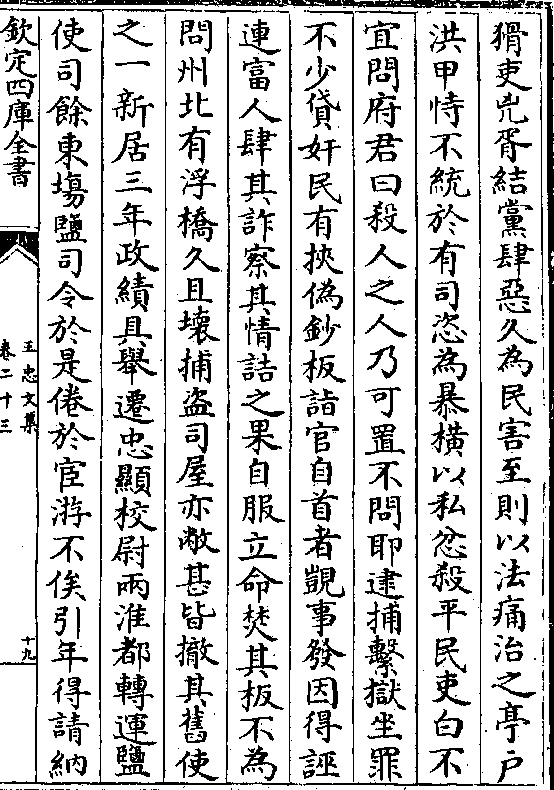 猾吏兇胥結黨肆惡久為民害至則以法痛治之亭戶
洪甲恃不統於有司恣為暴橫以私忿殺平民吏白不
宜問府君曰殺人之人乃可置不問耶逮捕繫獄坐罪
不少貸奸民有挾偽鈔板詣官自首者覬事發因得誣
連富人肆其詐察其情詰之果自服立命焚其板不為
問州北有浮橋久且壞捕盜司屋亦敝甚皆撤其舊使
之一新居三年政績具舉遷忠顯校尉兩淮都轉運鹽
使司餘東場鹽司令於是倦於宦游不俟引年得請納
欽定四庫全書
王忠文集
卷二十三
十九